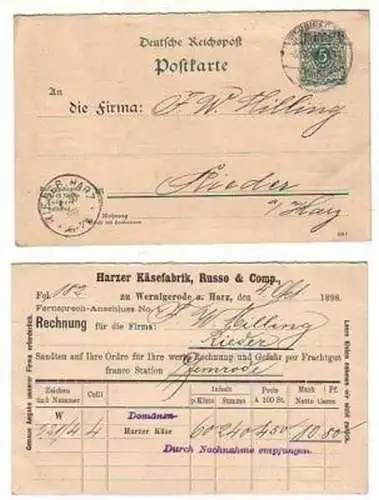 Deutsche Reichspost
Postkarte
5
An
die Firma: F. W. Hilling
Rieder
a/Harz
RIEDER HARZ
Wohnung
Harzer Käsefabrik, Russo & Comp.,
Fol. 102 zu Wernigerode a. Harz, den 1898.
Fernsprech-Anschluss No.
Rechnung für die Firma: F. W. Hilling
Rieder
Sandten auf Ihre Ordre für Ihre werte Rechnung und Gefahr per Frachtgut
franco Station
Zeichen und Nummer Colli Inhalt Preis Mark Pf.
p. Kiste Summa A 100 St. Netto Cassa
W Domänen-
4 Harzer Käse 60 240 450 10.80
Durch Nachnahme empfangen.
Genaue Angabe unserer Firma erforderlich.
Leere Kisten nehmen wir nicht zurück.